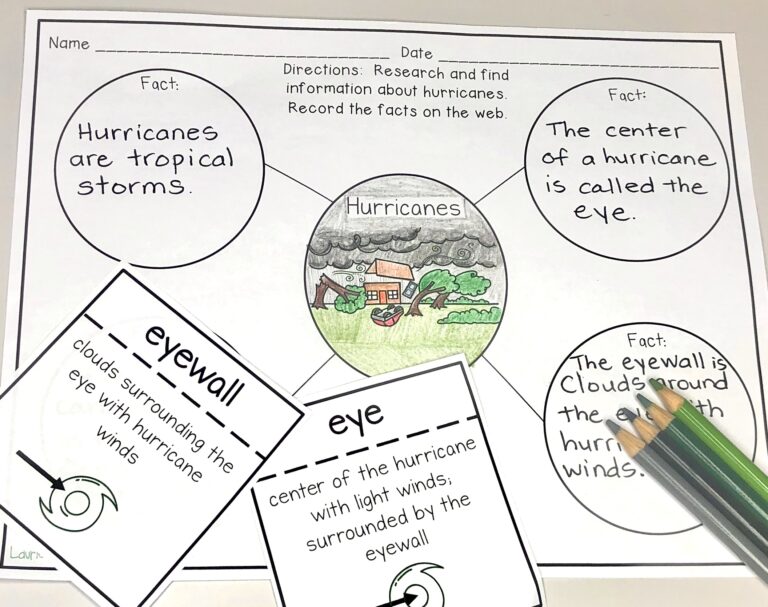 Name
Date
Directions: Research and find
information about hurricanes.
Record the facts on the web.
Fact:
Hurricanes
are tropical
storms.
Fact:
The center
of a hurricane
is called the
eye.
Hurricanes
Fact:
The eyewall is
Clouds around
the
winds.
eyewall
clouds surrounding the
eye with hurricane
winds
eye
center of the hurricane
with light winds;
surrounded by the
eyewall